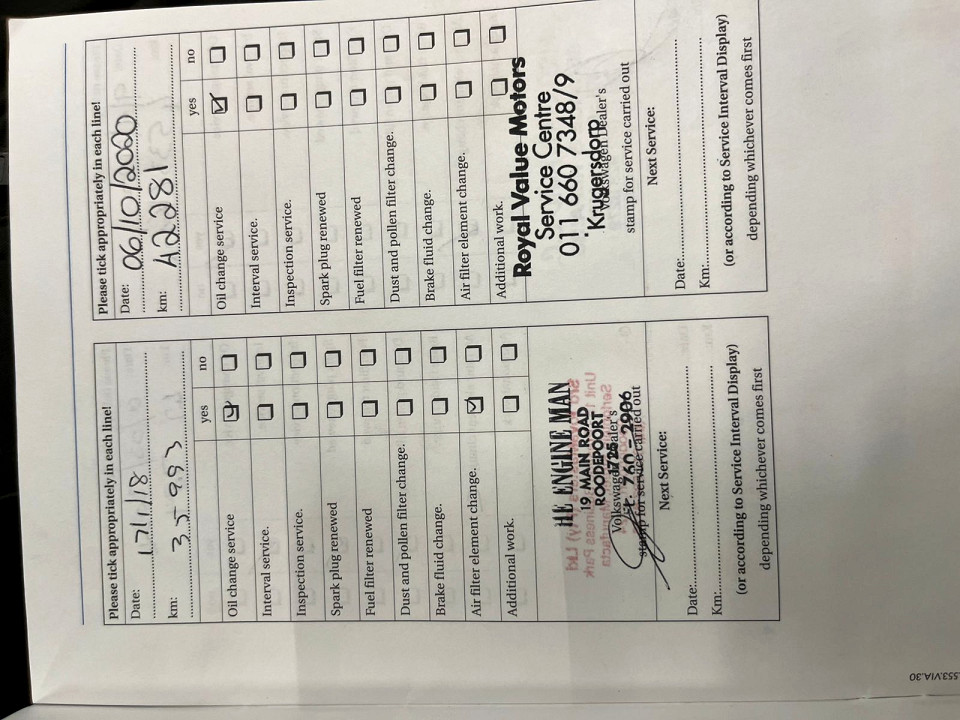 Please tick appropriately in each line!
Date: 17/1/18
km: 35-993
yes no
Oil change service
Interval service.
Inspection service.
Spark plug renewed
Fuel filter renewed
Dust and pollen filter change.
Brake fluid change.
Air filter element change.
Additional work.
HE ENGINE MAN
19 MAIN ROAD
ROODEPOORT
1725
760 - 2906
Volkswagen Dealer's
stamp for service carried out
Next Service:
Date:
Km:
(or according to Service Interval Display)
depending whichever comes first
Please tick appropriately in each line!
Date: 06/10/2020
km: 42281
yes no
Oil change service
Interval service.
Inspection service.
Spark plug renewed
Fuel filter renewed
Dust and pollen filter change.
Brake fluid change.
Air filter element change.
Additional work.
Royal Value Motors
Service Centre
011 660 7348/9
Krugersdorp
Volkswagen Dealer's
stamp for service carried out
Next Service:
Date:
Km:
(or according to Service Interval Display)
depending whichever comes first
.553.VIA.30